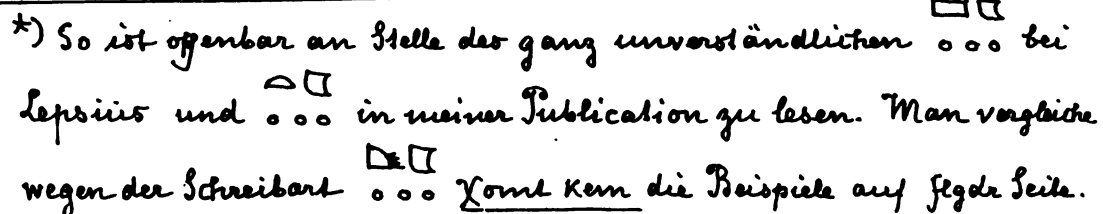 *) So ist offenbar an Stelle des ganz unverständlichen bei
Lepsius und in meiner Publication zu lesen. Man vergleiche
wegen der Schreibart Χomt Kem die Beispiele auf flgdr Seite.